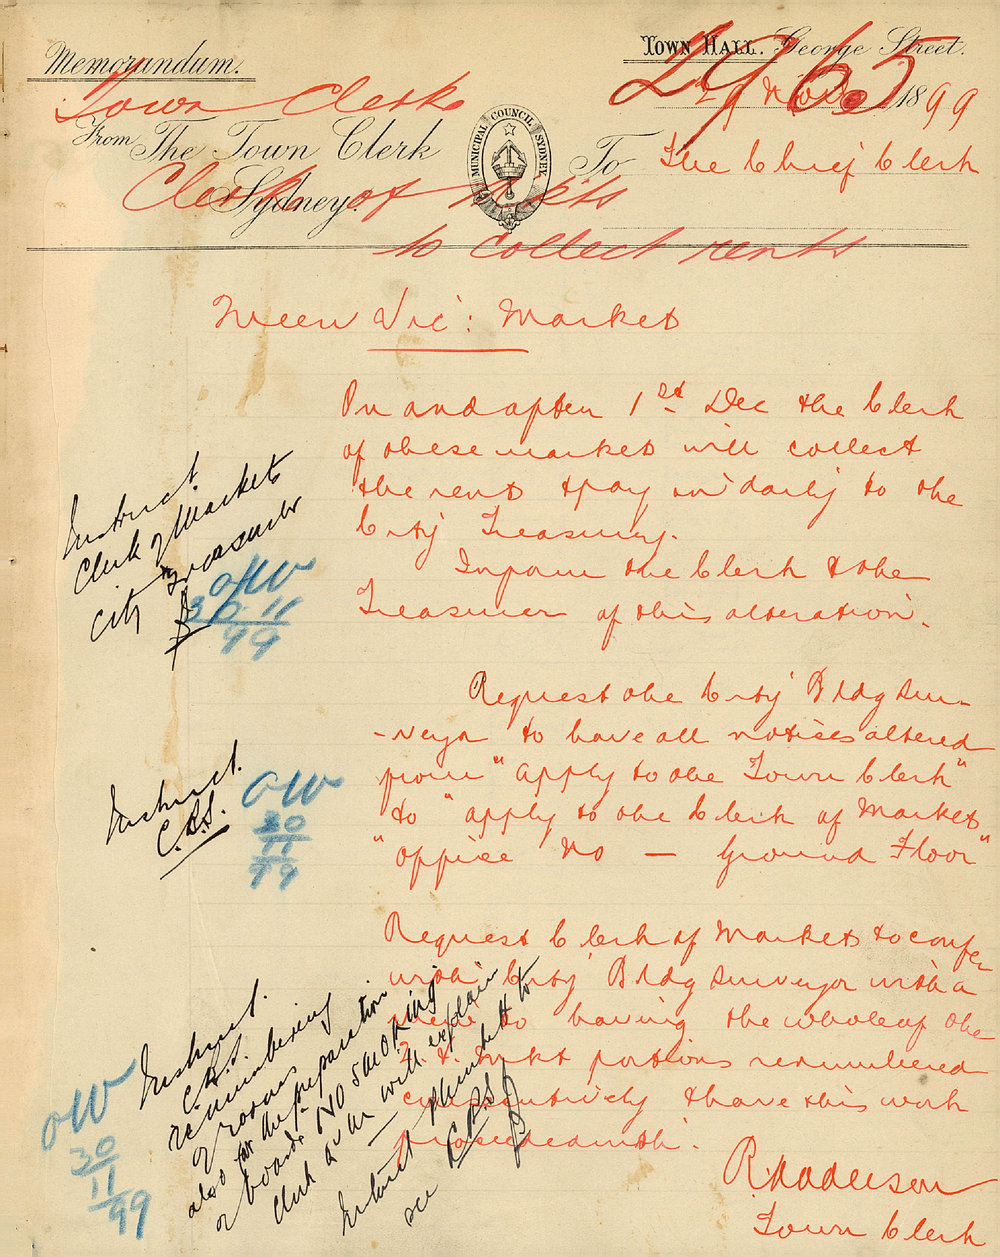 Memorandum.
Town Hall. George Street.
2965
29 Nov 1899
Town Clerk
From The Town Clerk
Sydney.
MUNICIPAL COUNCIL SYDNEY
To The Chief Clerk
Clerk of Mkts
to collect rents
Queen Vic: Market
On and after 1st Dec the Clerk
of these markets will collect
the rents & pay in daily to the
City Treasury.
Inform the Clerk & the
Treasurer of this alteration.
Instruct
Clerk of Markets
City Treasurer
OW
30.11
99
Request the City Bldg Sur-
-veyor to have all notices altered
from "apply to the Town Clerk"
to "apply to the Clerk of Markets
"office No — Ground Floor"
Instruct.
C.B.S.
OW
30
11
99
Request Clerk of Markets to confer
with City Bldg Surveyor with a
view to having the whole of the
Q.V. Mkt portions renumbered
consecutively & have this work
proceeded with.
R. H. Anderson
Town Clerk
Instruct.
C.B.S.
renumbering
of rooms
also for the preparation
of boards NO SMOKING
Clerk will explain
Instruct to
see C.B.S.
OW
30
11
99